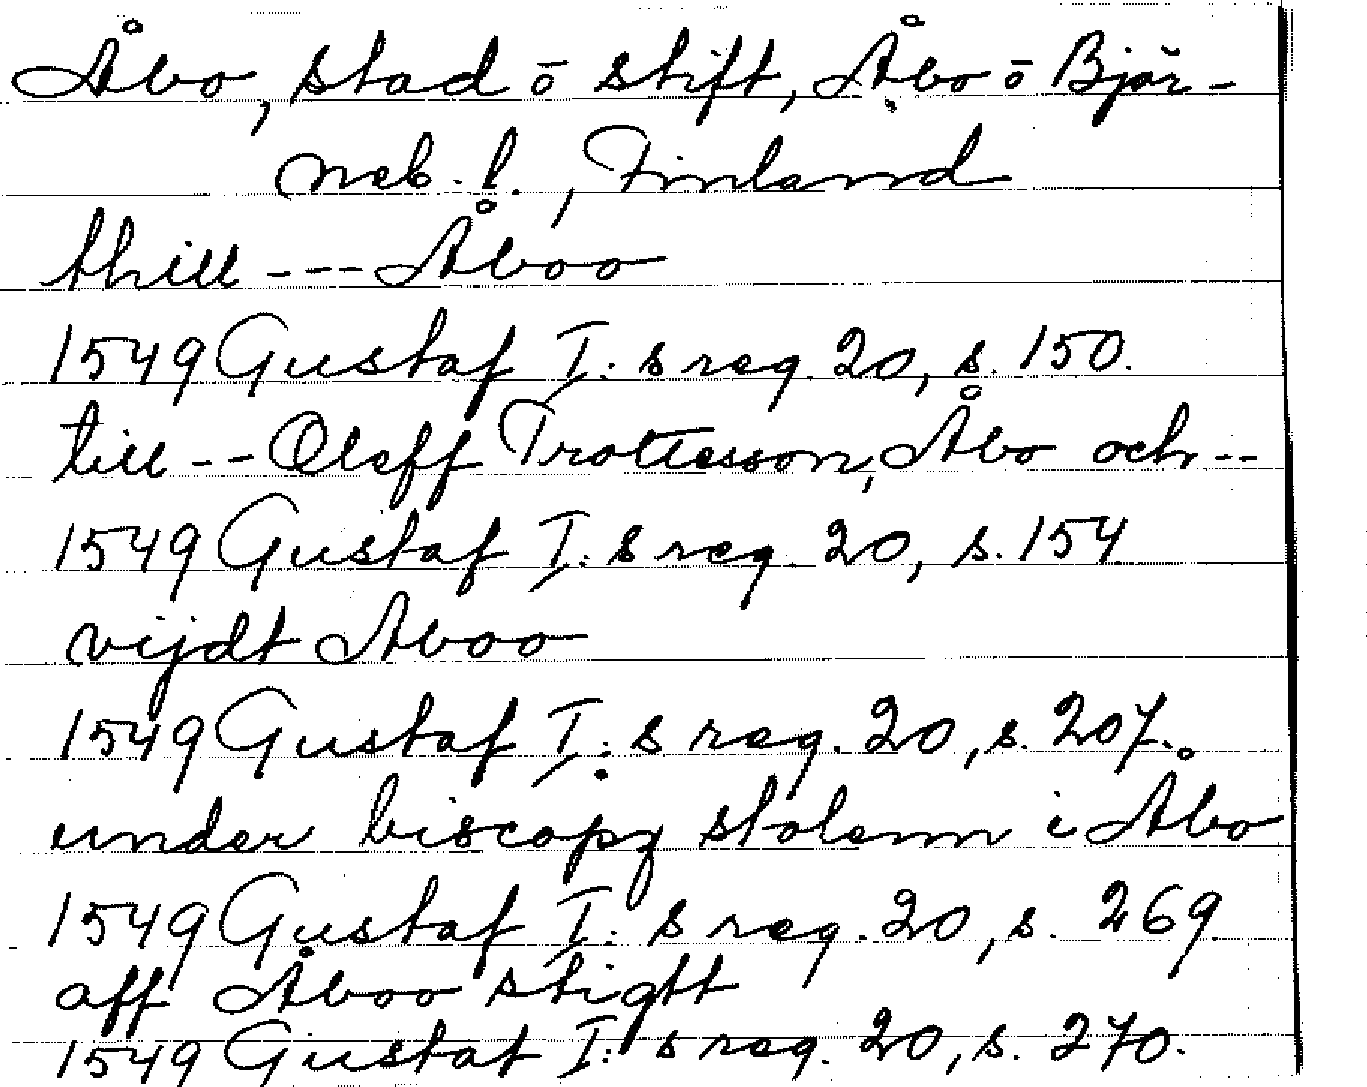 Åbo, stad ō stift, Åbo ō Björ-
neb. l., Finland
thill --- Åboo
1549 Gustaf I:s reg. 20, s. 150.
till -- Oleff Trottesson, Åbo och --
1549 Gustaf I:s reg. 20, s. 154
vijdt Aboo
1549 Gustaf I:s reg. 20, s. 207.
under biscopz stolenn i Åbo
1549 Gustaf I:s reg. 20, s. 269
aff Åboo stigtt
1549 Gustaf I:s reg. 20, s. 270.